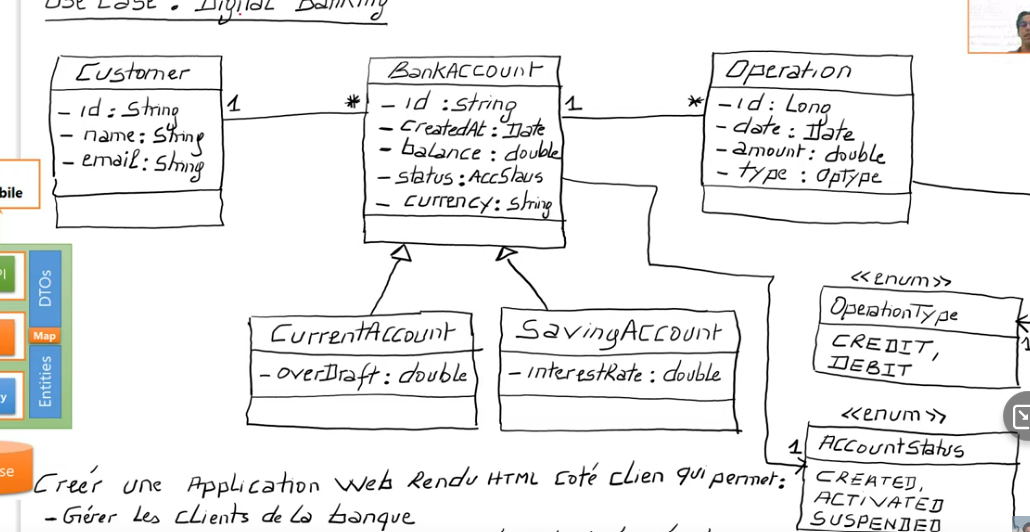 Use Case : Digital Banking
Customer
- id : String
- name : String
- email : String
1
*
BankAccount
- id : String
- CreatedAt : Date
- balance : double
- status : AccStaus
- currency : String
1
*
Operation
- id : Long
- date : Date
- amount : double
- type : OpType
bile
PI
DTOs
Map
Entities
y
se
CurrentAccount
- overDraft : double
SavingAccount
- interestRate : double
<<enum>>
OperationType
CREDIT,
DEBIT
1
<<enum>>
1
AccountStatus
CREATED,
ACTIVATED
SUSPENDED
Creér une Application Web Rendu HTML Coté Clien qui permet :
- Gérer Les Clients de La banque